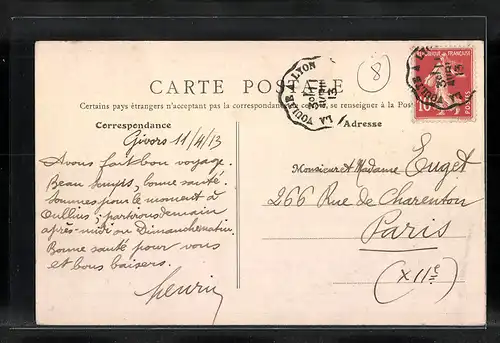 CARTE POSTALE
8
Certains pays étrangers n'acceptant pas la correspondance de ce côté, se renseigner à la Poste
LA VOULTE A LYON
13
RÉPUBLIQUE FRANÇAISE
10
POSTES
Correspondance
Adresse
Givors 11/4/13
Avons fait bon voyage.
Beau temps, bonne santé.
Sommes pour le moment à
Oullins; partirons demain
après-midi ou Dimanche matin.
Bonne santé pour vous
et bons baisers.
Henry
Monsieur et Madame Euget
266 Rue de Charenton
Paris
(XIIe)